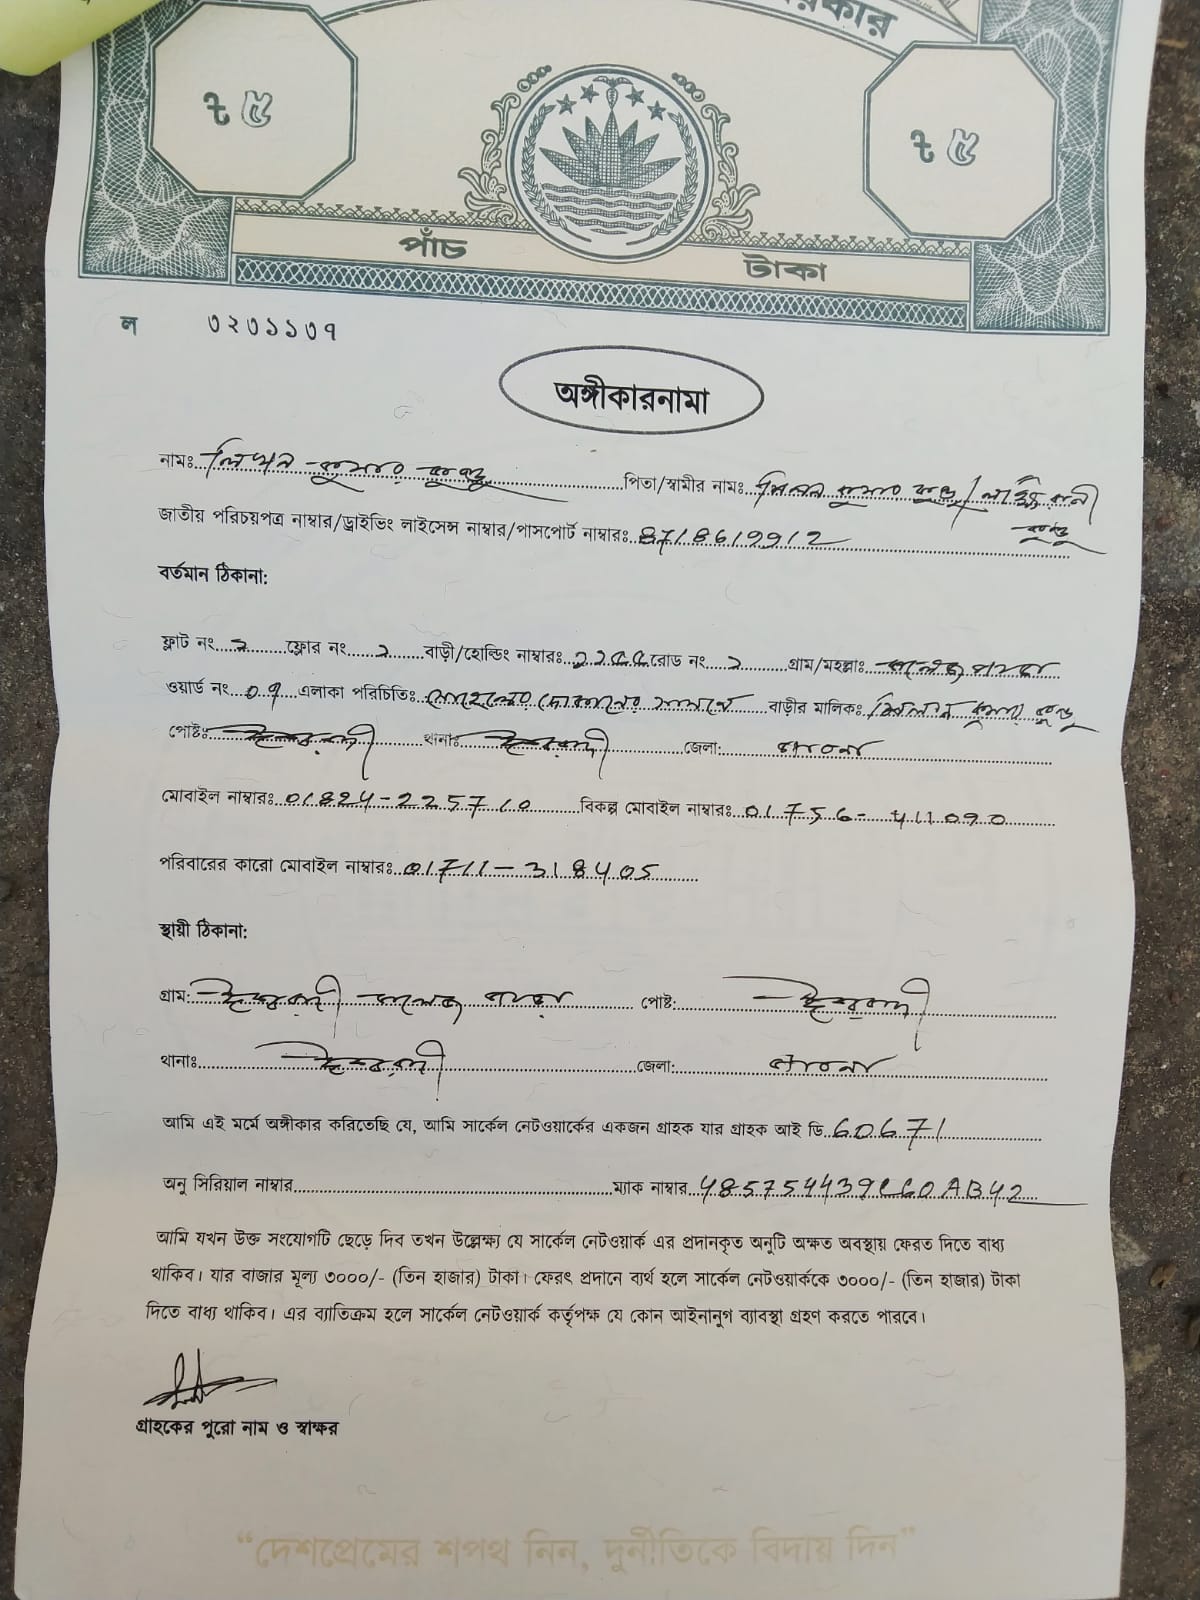 রকার
৳ ৫
৳ ৫
পাঁচ টাকা
ল ৩২৩১১৩৭
অঙ্গীকারনামা
নামঃ লিখন কুমার কুন্ডু পিতা/স্বামীর নামঃ কুমার কুন্ডু/ রানী
কুন্ডু
জাতীয় পরিচয়পত্র নাম্বার/ড্রাইভিং লাইসেন্স নাম্বার/পাসপোর্ট নাম্বারঃ 8718619912
বর্তমান ঠিকানা:
ফ্লাট নং ২ ফ্লোর নং ২ বাড়ী/হোল্ডিং নাম্বারঃ রোড নং ২ গ্রাম/মহল্লাঃ কলেজ পাড়া
ওয়ার্ড নং ০৭ এলাকা পরিচিতিঃ সোহেলের দোকানের সামনে বাড়ীর মালিকঃ কুমার কুন্ডু
পোষ্টঃ ঈশ্বরদী থানাঃ ঈশ্বরদী জেলা: পাবনা
মোবাইল নাম্বারঃ 01824-225710 বিকল্প মোবাইল নাম্বারঃ 01756-411090
পরিবারের কারো মোবাইল নাম্বারঃ 01711-318405
স্থায়ী ঠিকানা:
গ্রাম: ঈশ্বরদী কলেজ পাড়া পোষ্ট: ঈশ্বরদী
থানাঃ ঈশ্বরদী জেলা: পাবনা
আমি এই মর্মে অঙ্গীকার করিতেছি যে, আমি সার্কেল নেটওয়ার্কের একজন গ্রাহক যার গ্রাহক আই ডি 60671
অনু সিরিয়াল নাম্বার ম্যাক নাম্বার 485754439C60AB42
আমি যখন উক্ত সংযোগটি ছেড়ে দিব তখন উল্লেক্ষ্য যে সার্কেল নেটওয়ার্ক এর প্রদানকৃত অনুটি অক্ষত অবস্থায় ফেরত দিতে বাধ্য
থাকিব। যার বাজার মূল্য ৩০০০/- (তিন হাজার) টাকা। ফেরৎ প্রদানে ব্যর্থ হলে সার্কেল নেটওয়ার্ককে ৩০০০/- (তিন হাজার) টাকা
দিতে বাধ্য থাকিব। এর ব্যাতিক্রম হলে সার্কেল নেটওয়ার্ক কর্তৃপক্ষ যে কোন আইনানুগ ব্যাবস্থা গ্রহণ করতে পারবে।
গ্রাহকের পুরো নাম ও স্বাক্ষর
“দেশপ্রেমের শপথ নিন, দুর্নীতিকে বিদায় দিন”